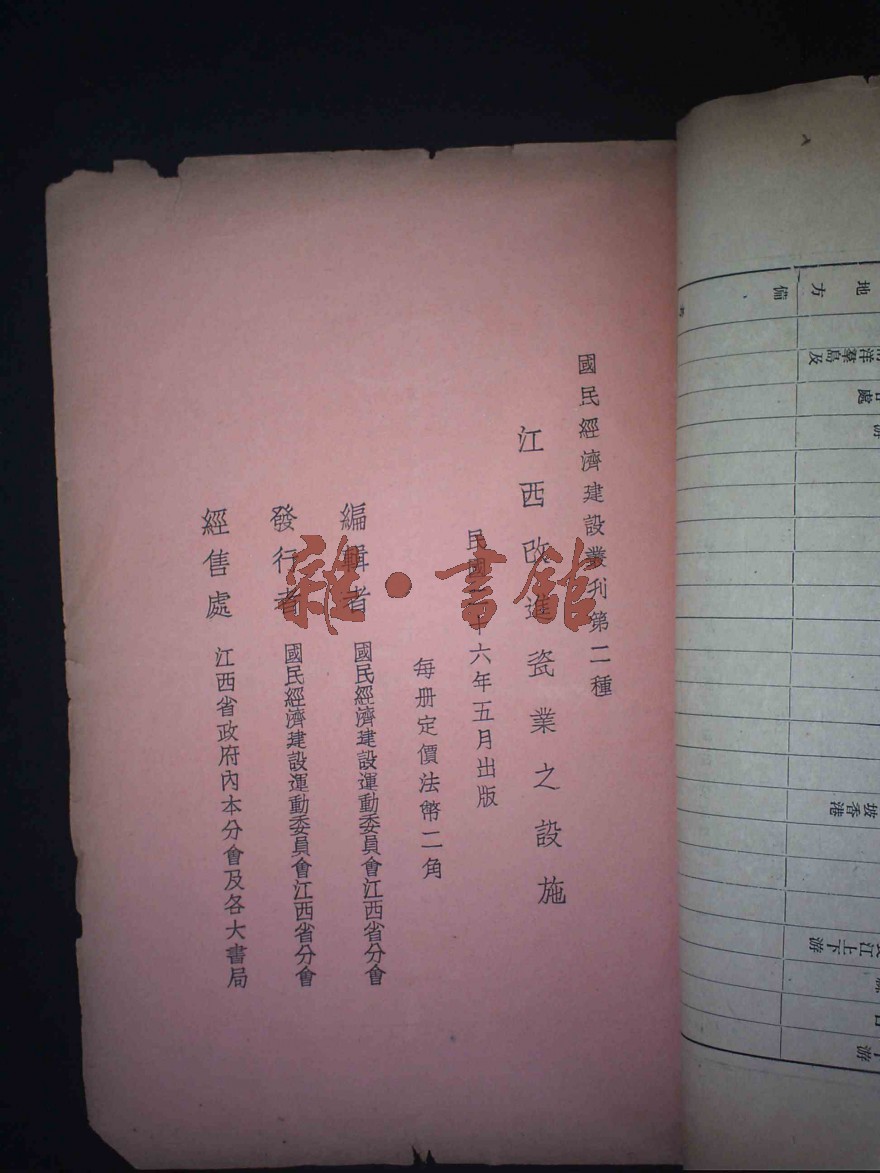 國民經濟建設叢刊第二種
江西改進瓷業之設施
民國二十六年五月出版
每册定價法幣二角
編輯者 國民經濟建設運動委員會江西省分會
發行者 國民經濟建設運動委員會江西省分會
經售處 江西省政府內本分會及各大書局
雜·書館
地方
備
洋羣島及
處
游
坡香港
江上下游
游